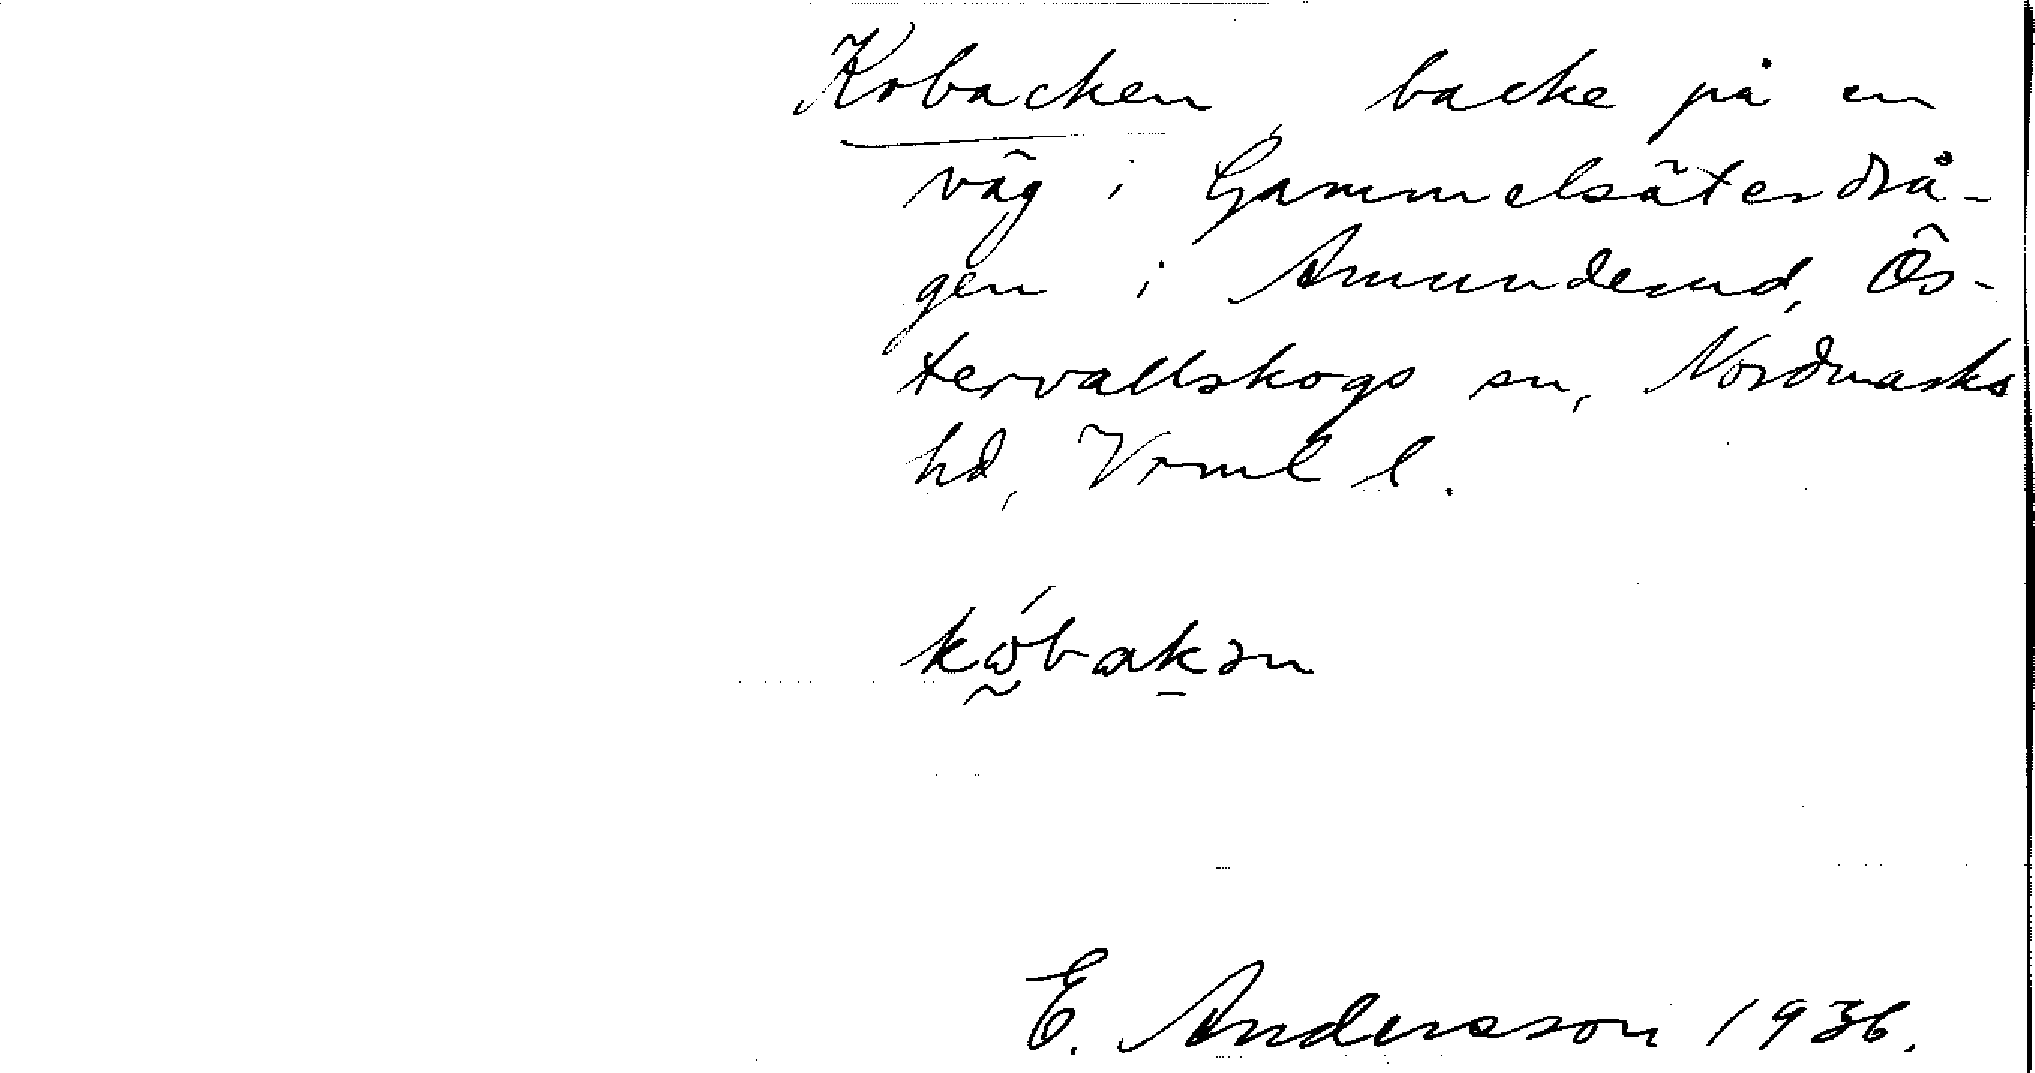 Kobacken, backe på en
väg i Gammelsäterdrå-
gen i Amunderud, Ös-
tervallskogs sn, Nordmarks
hd, Vrml l.
kώbakən
E. Andersson 1936.